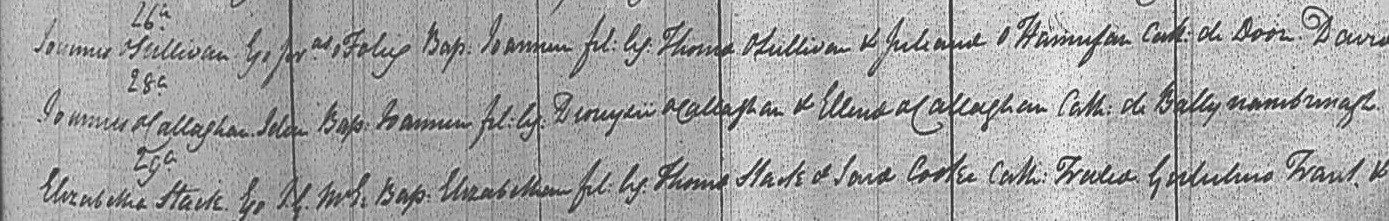 26a
Joannes O'Sullivan Ego Foley Bap: Joannem fil: leg: Thomae O'Sullivan & Julianae O'Hannifan Cath: de Doon. David
28a
Joannes O'Callaghan. Idem Bap: Joannem fil: leg: Dionysii O'Callaghan & Ellenae O'Callaghan Cath: de Ballynambrenagh.
29a
Elizabetha Stack. Ego Bap: Elizabetham fil: leg: Thomae Stack & Cooke Cath: Tralee. Gulielmo Trant &